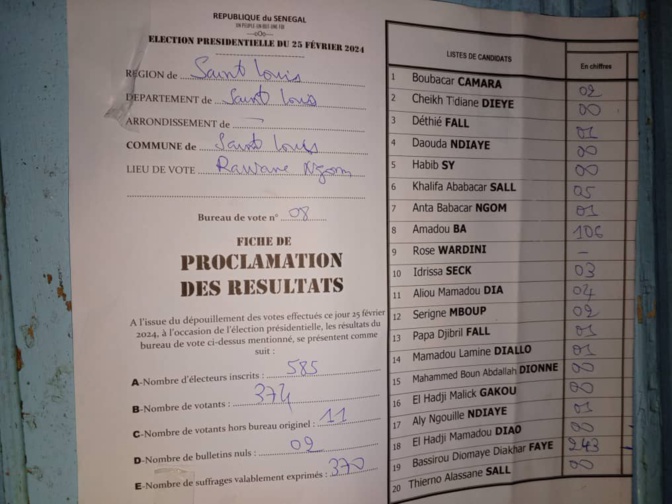 REPUBLIQUE du SENEGAL
UN PEUPLE UN BUT UNE FOI
---o0o---
ELECTION PRESIDENTIELLE DU 25 FÉVRIER 2024
RÉGION de Saint Louis
DEPARTEMENT de Saint Louis
ARRONDISSEMENT de —
COMMUNE de Saint Louis
LIEU DE VOTE Rawane Ngom
Bureau de vote n° 08
FICHE DE
PROCLAMATION
DES RESULTATS
A l'issue du dépouillement des votes effectués ce jour 25 février
2024, à l'occasion de l'élection présidentielle, les résultats du
bureau de vote ci-dessus mentionné, se présentent comme
suit :
A-Nombre d'électeurs inscrits : 585
B-Nombre de votants : 374
C-Nombre de votants hors bureau originel : 11
D-Nombre de bulletins nuls : 02
E-Nombre de suffrages valablement exprimés : 370
LISTES DE CANDIDATS En chiffres
1 Boubacar CAMARA 02
2 Cheikh Tidiane DIEYE 00
3 Déthié FALL 01
4 Daouda NDIAYE 00
5 Habib SY 00
6 Khalifa Ababacar SALL 05
7 Anta Babacar NGOM 01
8 Amadou BA 106
9 Rose WARDINI –
10 Idrissa SECK 03
11 Aliou Mamadou DIA 04
12 Serigne MBOUP 02
13 Papa Djibril FALL 01
14 Mamadou Lamine DIALLO 01
15 Mahammed Boun Abdallah DIONNE 00
16 El Hadji Malick GAKOU 00
17 Aly Ngouille NDIAYE 01
18 El Hadji Mamadou DIAO 00
19 Bassirou Diomaye Diakhar FAYE 243
20 Thierno Alassane SALL 00